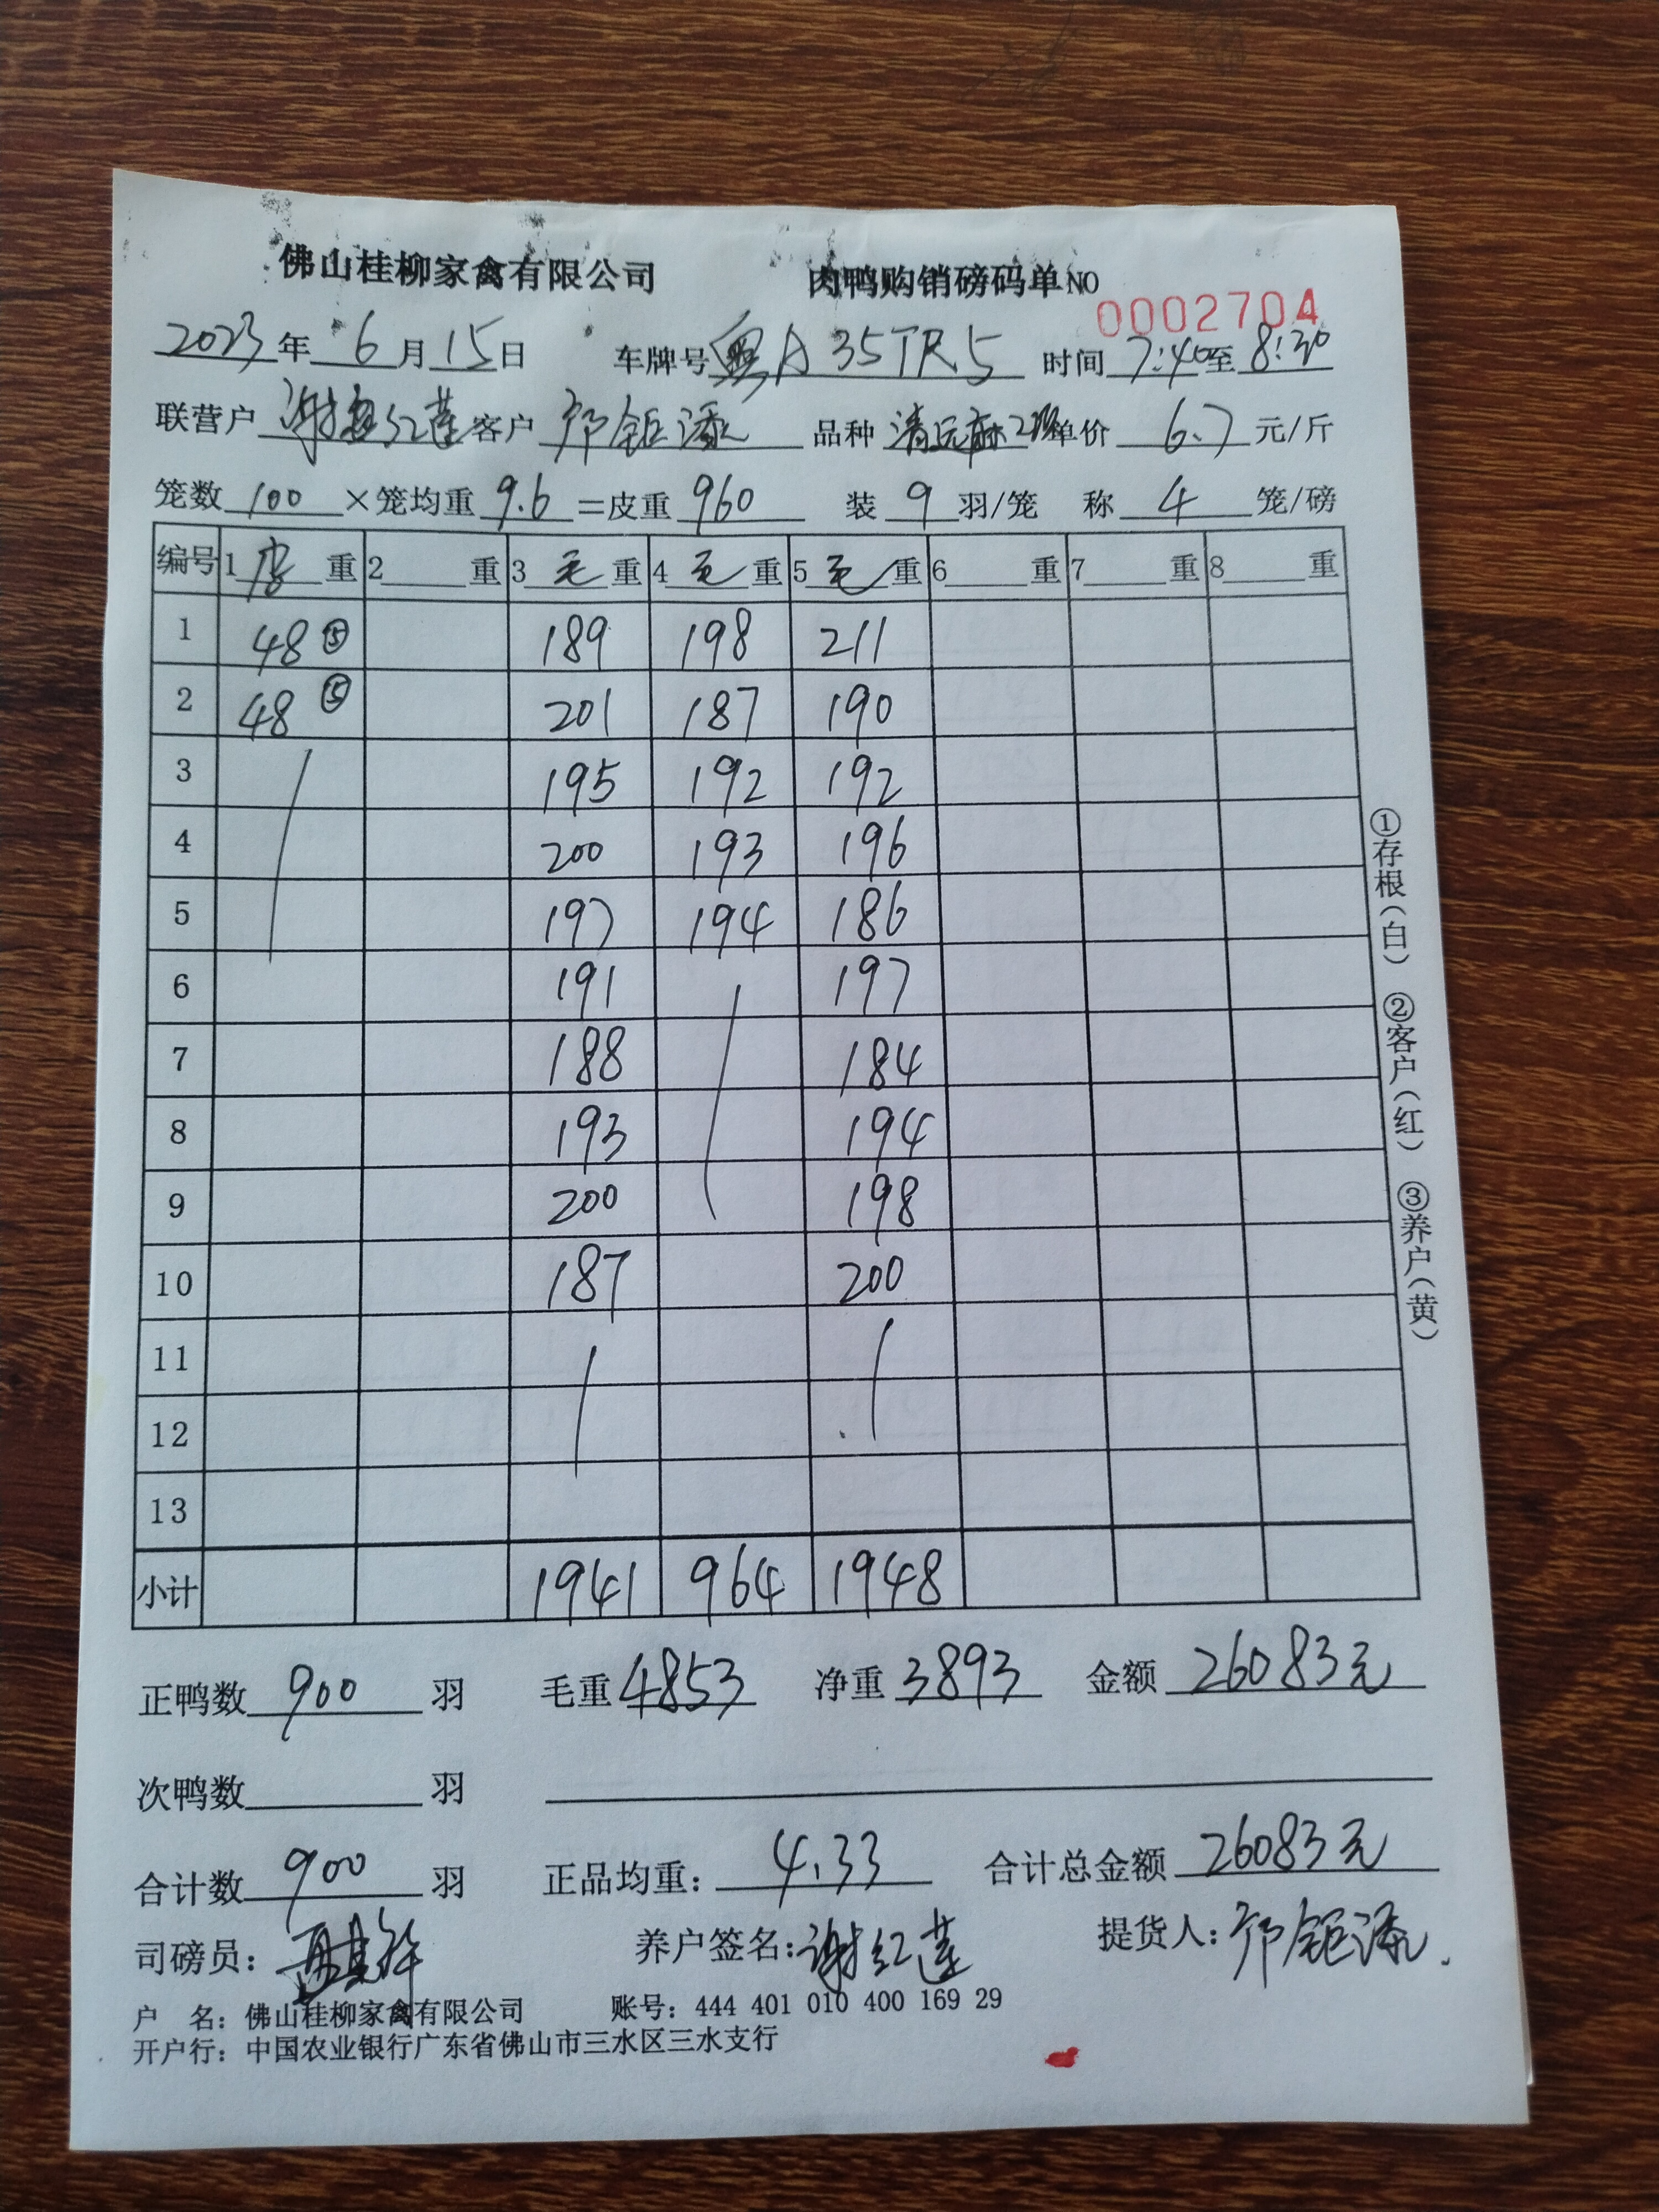 佛山桂柳家禽有限公司 肉鸭购销磅码单NO 0002704
2023年 6月15日 车牌号 粤A35TR5 时间 7:40至 8:30
联营户 谢红莲 客户 邝钜添 品种 清远麻 单价 6.7 元/斤
笼数 100 ×笼均重 9.6 =皮重 960 装 9 羽/笼 称 4 笼/磅
编号 1 皮 重 2 重 3 毛 重 4 毛 重 5 毛 重 6 重 7 重 8 重
1 48⑤ 189 198 211
2 48⑤ 201 187 190
3 195 192 192
4 200 193 196
5 197 194 186
6 191 197
7 188 184
8 193 194
9 200 198
10 187 200
11
12
13
小计 1941 964 1948
正鸭数 900 羽 毛重 4853 净重 3893 金额 26083元
次鸭数 羽
合计数 900 羽 正品均重: 4.33 合计总金额 26083元
司磅员: 养户签名: 谢红莲 提货人: 邝钜添.
户 名: 佛山桂柳家禽有限公司 账号: 444 401 010 400 169 29
开户行: 中国农业银行广东省佛山市三水区三水支行
①存根(白) ②客户(红) ③养户(黄)